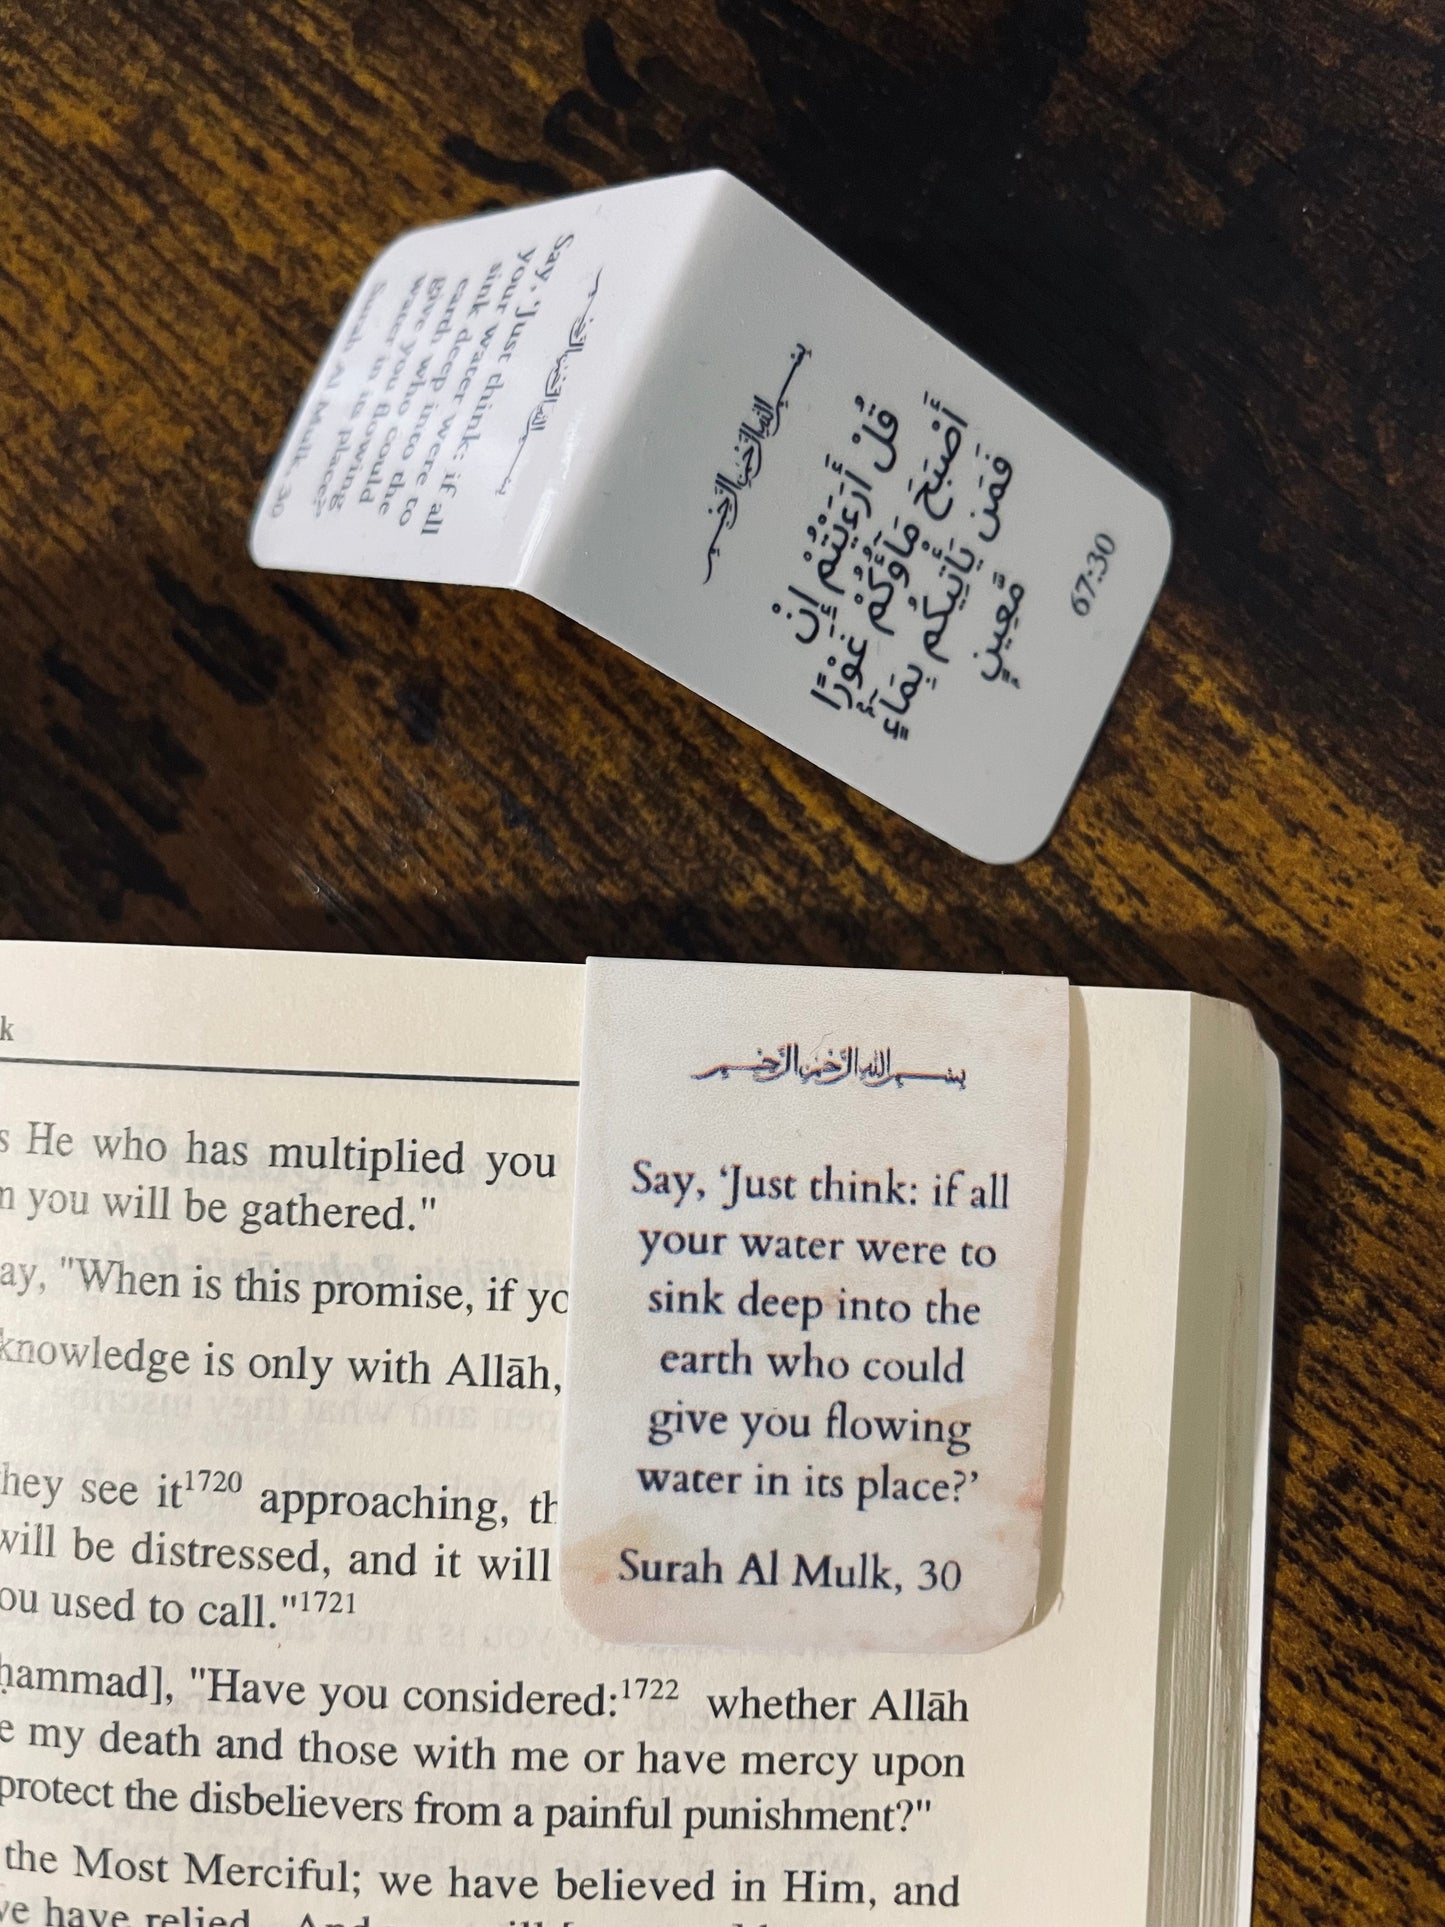 بِسْمِ اللهِ الرَّحْمٰنِ الرَّحِيْمِ
Say, 'Just think: if all
your water were to
sink deep into the
earth who could
give you flowing
water in its place?'
Surah Al Mulk, 30
بِسْمِ اللهِ الرَّحْمٰنِ الرَّحِيْمِ
قُلْ أَرَءَيْتُمْ إِنْ
أَصْبَحَ مَآؤُكُمْ غَوْرًا
فَمَن يَأْتِيكُم بِمَآءٍ
مَّعِينٍ
67:30
بِسْمِ اللهِ الرَّحْمٰنِ الرَّحِيْمِ
Say, 'Just think: if all
your water were to
sink deep into the
earth who could
give you flowing
water in its place?'
Surah Al Mulk, 30
k
s He who has multiplied you
you will be gathered."
ay, "When is this promise, if yo
knowledge is only with Allāh,
hey see it1720 approaching, th
will be distressed, and it will
ou used to call."1721
ḥammad], "Have you considered:1722 whether Allāh
e my death and those with me or have mercy upon
protect the disbelievers from a painful punishment?"
the Most Merciful; we have believed in Him, and
ve have relied. And